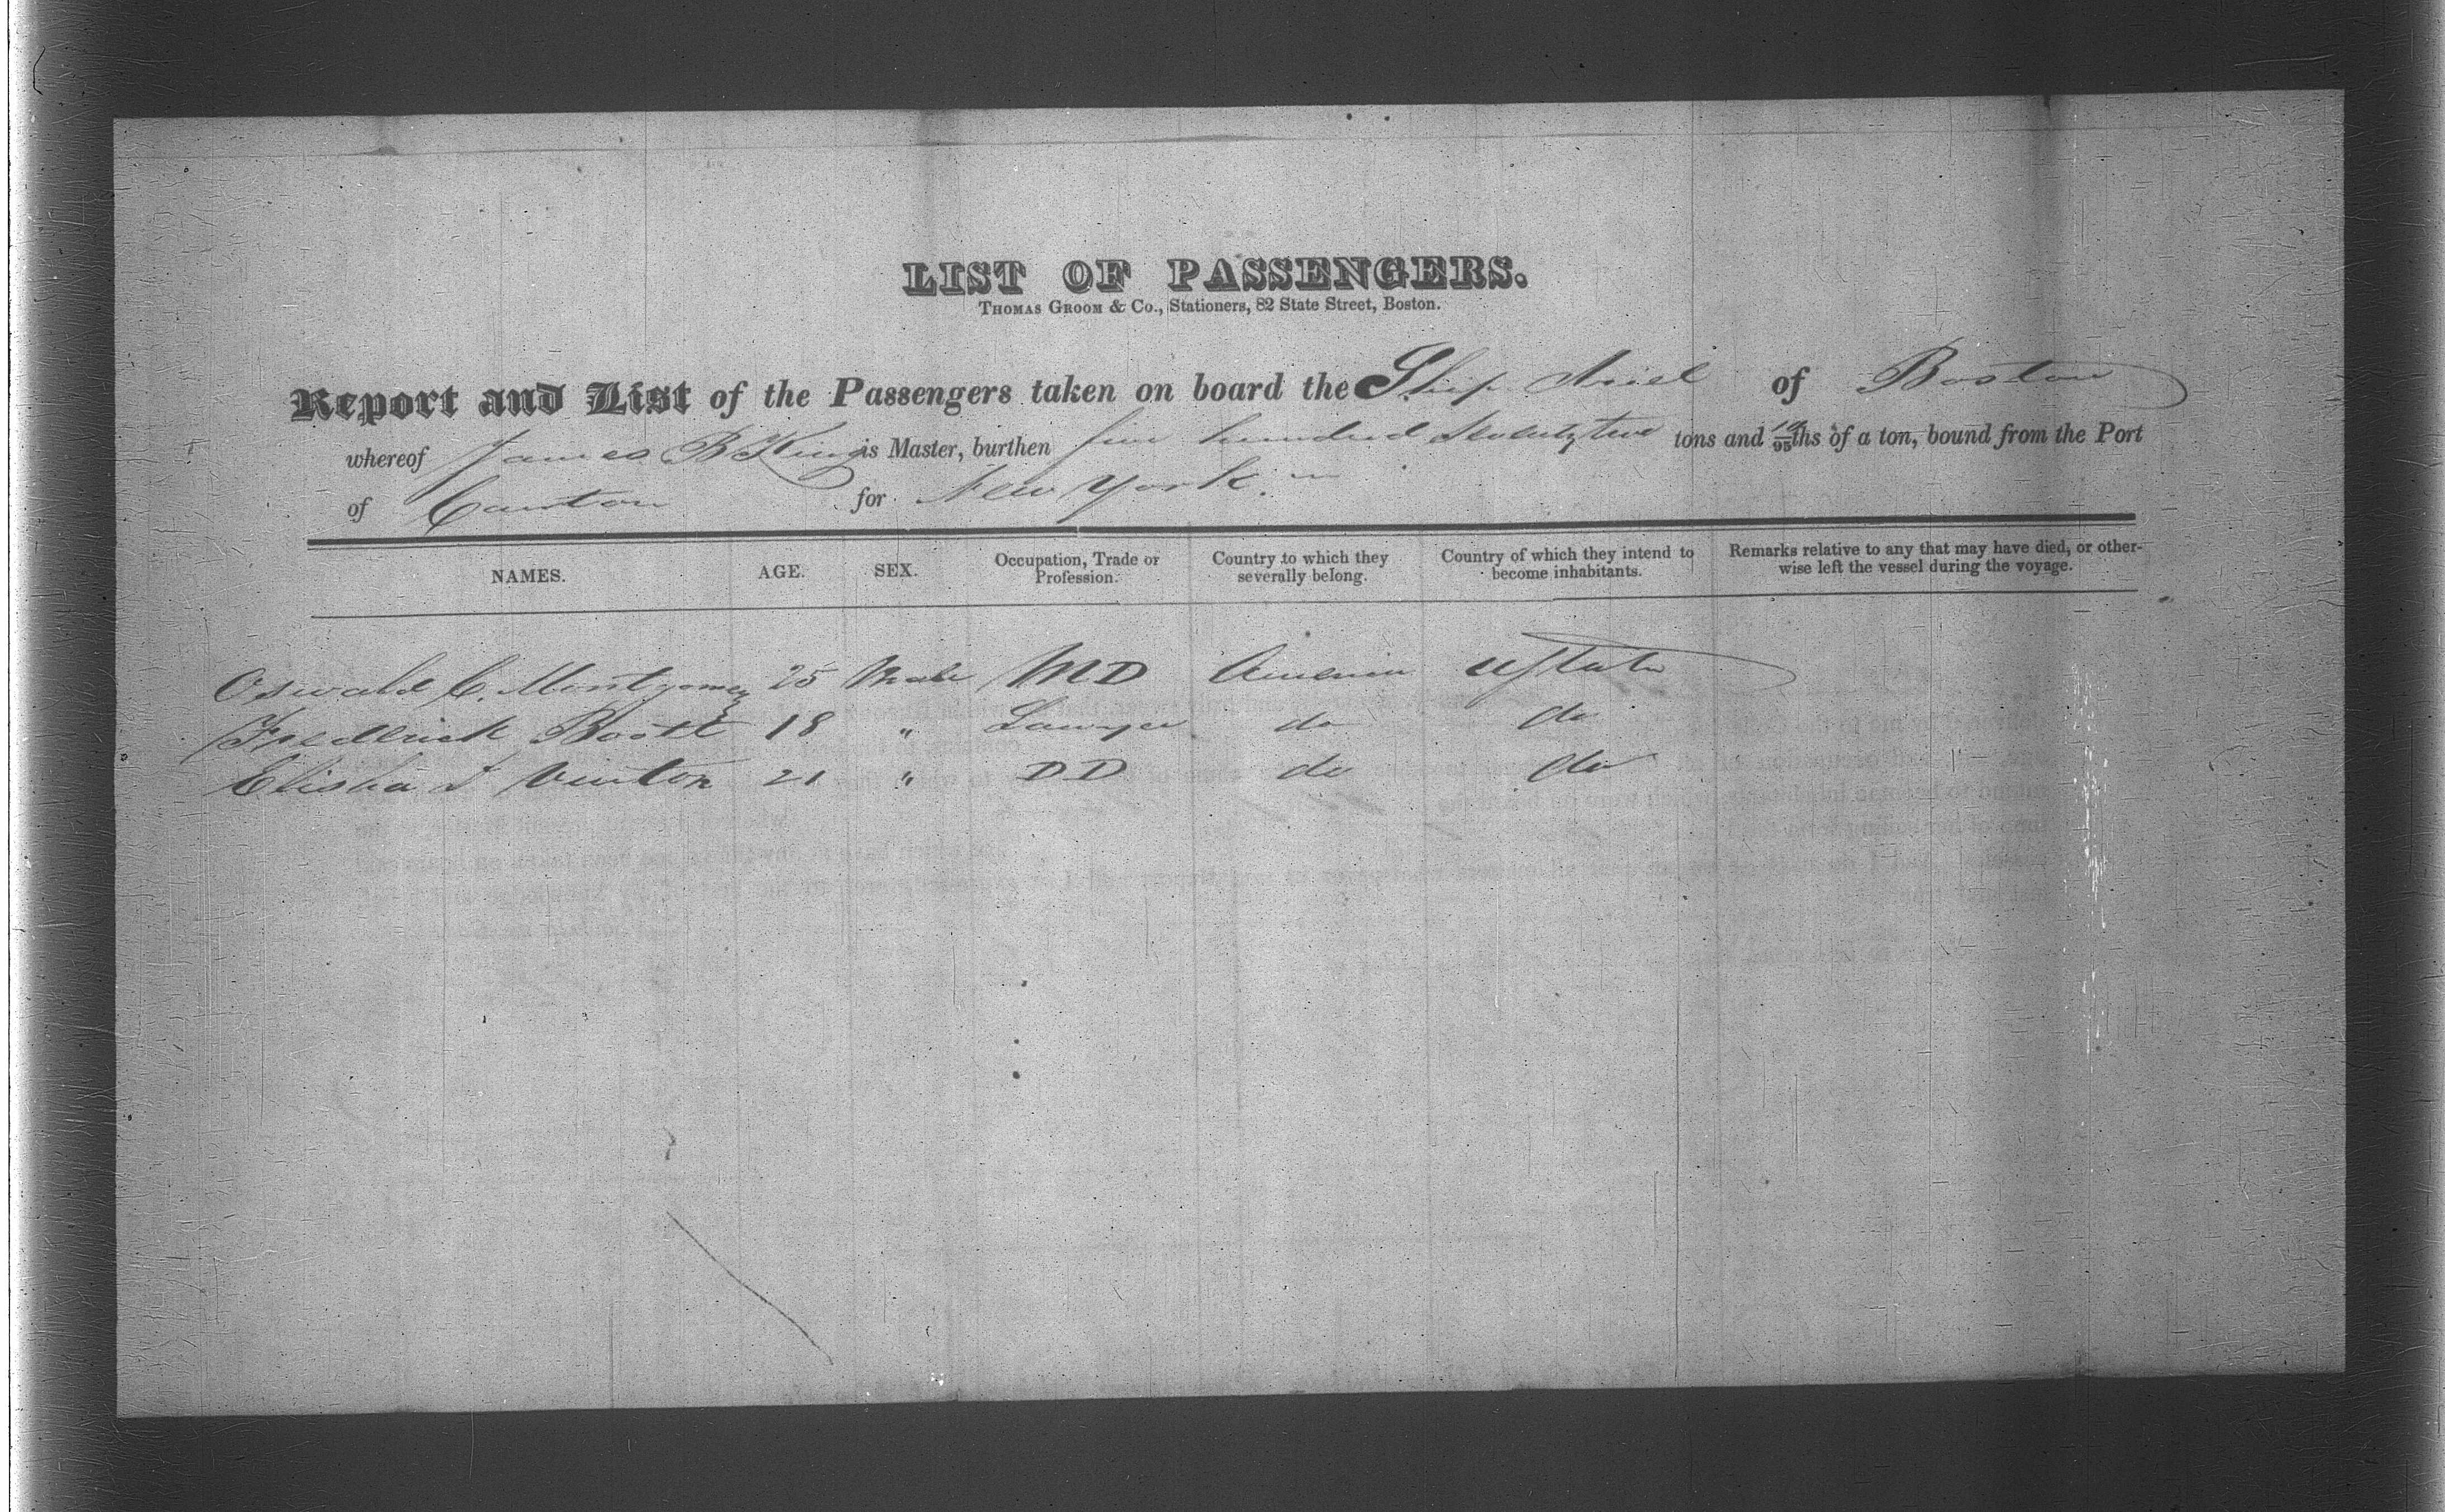 LIST OF PASSENGERS.
THOMAS GROOM & Co., Stationers, 82 State Street, Boston.
Report and List of the Passengers taken on board the Ship Ariel of Boston
whereof James B King is Master, burthen five hundred Seventy two tons and 19/95ths of a ton, bound from the Port
of Canton for New York.
NAMES. AGE. SEX. Occupation, Trade or Profession. Country to which they severally belong. Country of which they intend to become inhabitants. Remarks relative to any that may have died, or otherwise left the vessel during the voyage.
Oswald C. Montgomery 25 Male MD America UStates
Frederick Boott 18 " Lawyer do do
Elisha S Vinton 21 " DD do do